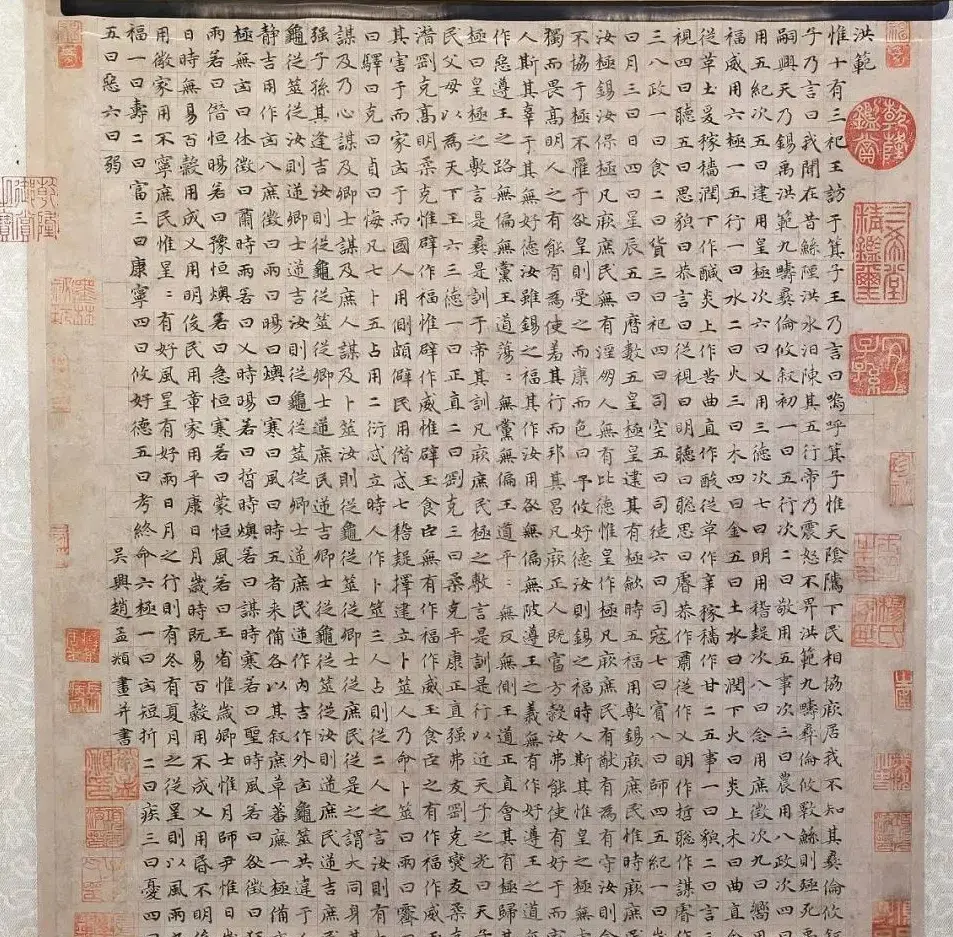 洪範
惟十有三祀王訪于箕子王乃言曰嗚呼箕子惟天陰騭下民相協厥居我不知其彝倫攸
子乃言曰我聞在昔鯀陻洪水汩陳其五行帝乃震怒不畀洪範九疇彝倫攸斁鯀則殛死
嗣興天乃錫禹洪範九疇彝倫攸叙初一曰五行次二曰敬用五事次三曰農用八政次四曰
用五紀次五曰建用皇極次六曰乂用三德次七曰明用稽疑次八曰念用庶徵次九曰嚮用
福威用六極一五行一曰水二曰火三曰木四曰金五曰土水曰潤下火曰炎上木曰曲直
從革土爰稼穡潤下作鹹炎上作苦曲直作酸從革作辛稼穡作甘二五事一曰貌二曰言三
視四曰聽五曰思貌曰恭言曰從視曰明聽曰聰思曰睿恭作肅從作乂明作哲聰作謀睿作
三八政一曰食二曰貨三曰祀四曰司空五曰司徒六曰司寇七曰賓八曰師四五紀一曰
曰月三曰日四曰星辰五曰曆數五皇極皇建其有極歛時五福用敷錫厥庶民惟時厥庶民
汝極錫汝保極凡厥庶民無有淫朋人無有比德惟皇作極凡厥庶民有猷有為有守汝則
不協于極不罹于咎皇則受之而康而色曰予攸好德汝則錫之福時人斯其惟皇之極無
獨而畏高明人之有能有為使羞其行而邦其昌凡厥正人既富方穀汝弗能使有好于而
人斯其辜于其無好德汝雖錫之福其作汝用咎無偏無陂遵王之義無有作好遵王之道
作惡遵王之路無偏無黨王道蕩:無黨無偏王道平:無反無側王道正直會其有極歸其
極曰皇極之敷言是彝是訓于帝其訓凡厥庶民極之敷言是訓是行以近天子之光曰天子
民父母以為天下王六三德一曰正直二曰剛克三曰柔克平康正直强弗友剛克燮友柔
潛剛克高明柔克惟辟作福惟辟作威惟辟玉食臣無有作福作威玉食臣之有作福作威
其害于而家凶于而國人用側頗僻民用僭忒七稽疑擇建立卜筮人乃命卜筮曰雨曰霽
曰驛曰克曰貞曰悔凡七卜五占用二衍忒立時人作卜筮三人占則從二人之言汝則有
謀及乃心謀及卿士謀及庶人謀及卜筮汝則從龜從筮從卿士從庶民從是之謂大同身
强子孫其逢吉汝則從龜從筮從卿士逆庶民逆吉卿士從龜從筮從汝則逆庶民逆吉庶
龜從筮從汝則逆卿士逆吉汝則從龜從筮逆卿士逆庶民逆作內吉作外凶龜筮共違于
静吉用作凶八庶徵曰雨曰暘曰燠曰寒曰風曰時五者来備各以其叙庶草蕃廡一極備
極無凶曰休徵曰肅時雨若曰乂時暘若曰哲時燠若曰謀時寒若曰聖時風若曰咎徵曰
雨若曰僭恒暘若曰豫恒燠若曰急恒寒若曰蒙恒風若曰王省惟歲卿士惟月師尹惟日
日時無易百穀用成乂用明俊民用章家用平康日月歲時既易百穀用不成乂用昏不明
用微家用不寧庶民惟星:有好風星有好雨日月之行則有冬有夏月之從星則以風雨
福一曰壽二曰富三曰康寧四曰攸好德五曰考終命六極一曰凶短折二曰疾三曰憂四
五曰惡六曰弱
吳興趙孟頫畫并書
乾隆鑑賞
三希堂精鑑璽
宜子孫